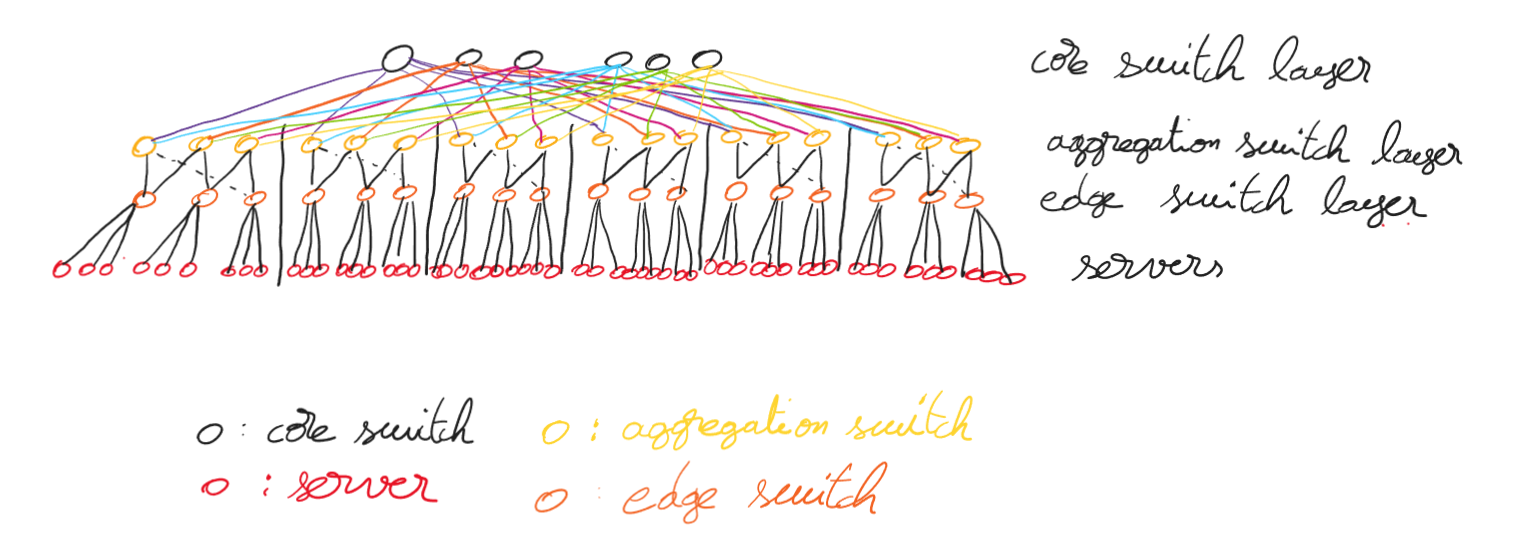 core switch layer
aggregation switch layer
edge switch layer
servers
O : core switch
O : aggregation switch
O : server
O : edge switch